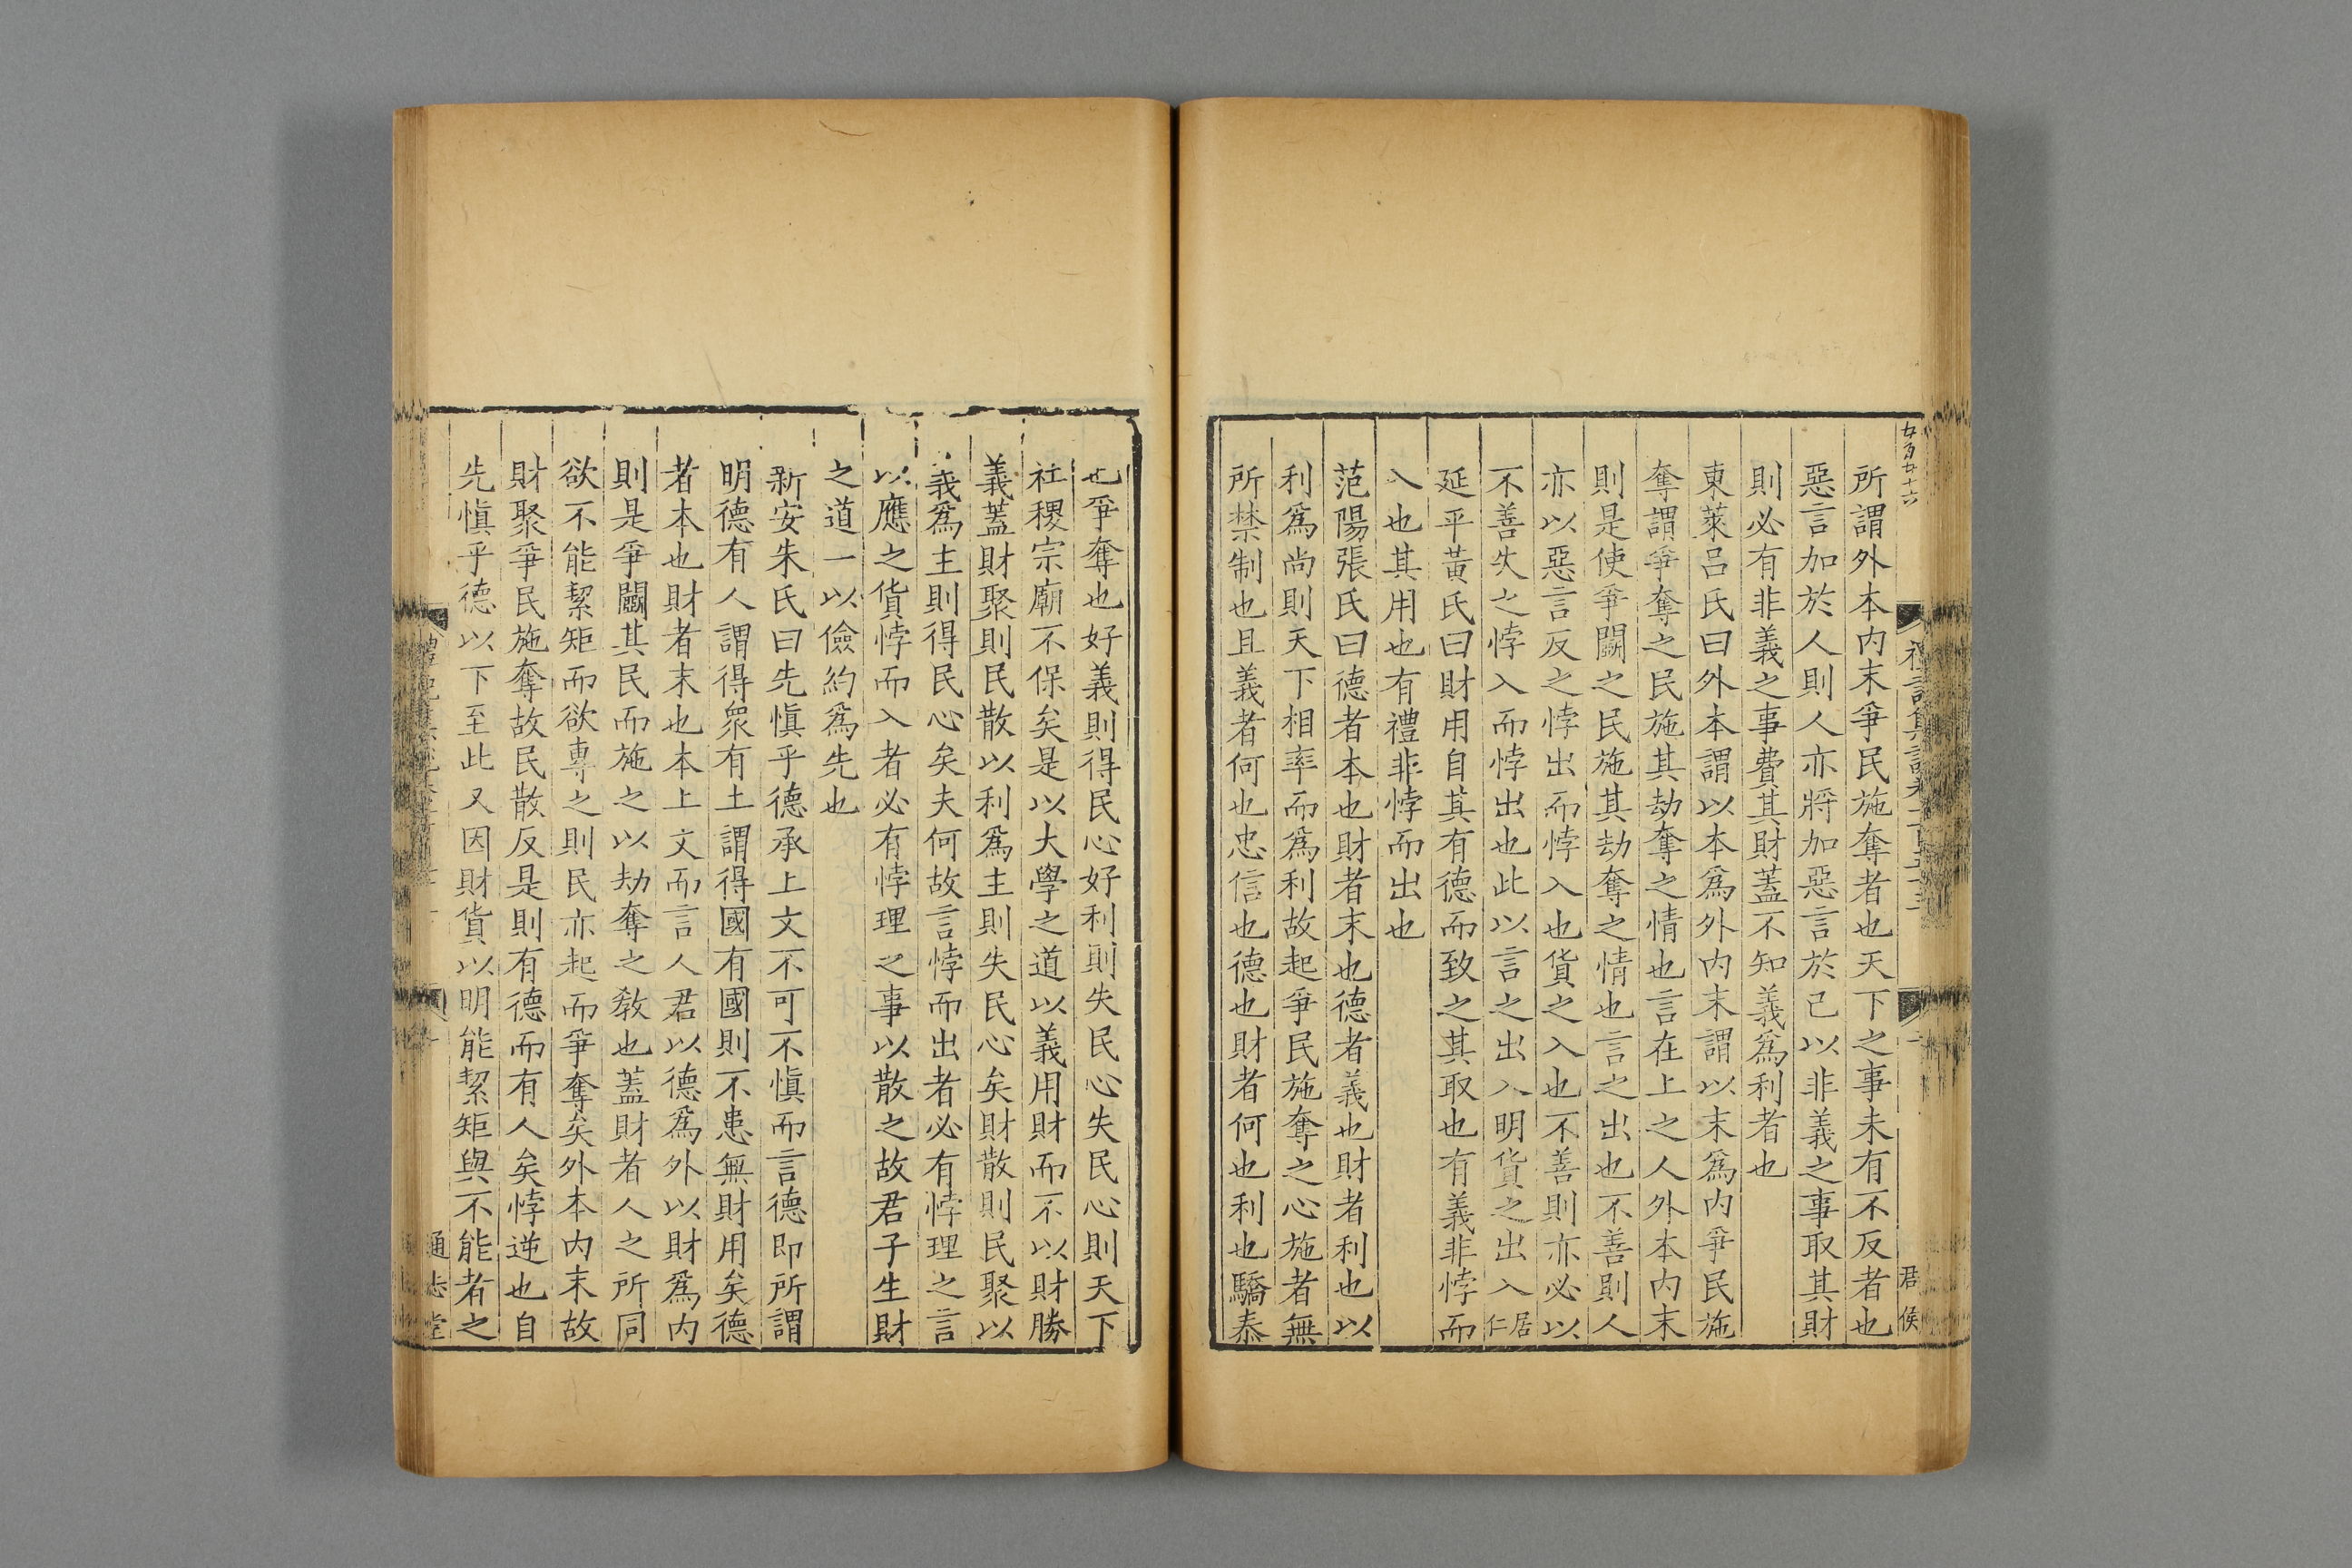 所謂外本内末爭民施奪者也天下之事未有不反者也
惡言加於人則人亦將加惡言於己以非義之事取其財
則必有非義之事費其財蓋不知義爲利者也
東萊呂氏曰外本謂以本爲外内末謂以末爲内爭民施
奪謂爭奪之民施其劫奪之情也言在上之人外本内末
則是使爭鬭之民施其劫奪之情也言之出也不善則人
亦以惡言反之悖出而悖入也貨之入也不善則亦必以
不善失之悖入而悖出也此以言之出入明貨之出入居仁
延平黃氏曰財用自其有德而致之其取也有義非悖而
入也其用也有禮非悖而出也
范陽張氏曰德者本也財者末也德者義也財者利也以
利爲尚則天下相率而爲利故起爭民施奪之心施者無
所禁制也且義者何也忠信也德也財者何也利也驕泰
君侯
也爭奪也好義則得民心好利則失民心失民心則天下
社稷宗廟不保矣是以大學之道以義用財而不以財勝
義蓋財聚則民散以利爲主則失民心矣財散則民聚以
義爲主則得民心矣夫何故言悖而出者必有悖理之言
以應之貨悖而入者必有悖理之事以散之故君子生財
之道一以儉約爲先也
新安朱氏曰先慎乎德承上文不可不慎而言德即所謂
明德有人謂得衆有土謂得國有國則不患無財用矣德
者本也財者末也本上文而言人君以德爲外以財爲内
則是爭鬭其民而施之以劫奪之教也蓋財者人之所同
欲不能絜矩而欲專之則民亦起而爭奪矣外本内末故
財聚爭民施奪故民散反是則有德而有人矣悖逆也自
先慎乎德以下至此又因財貨以明能絜矩與不能者之
通志堂